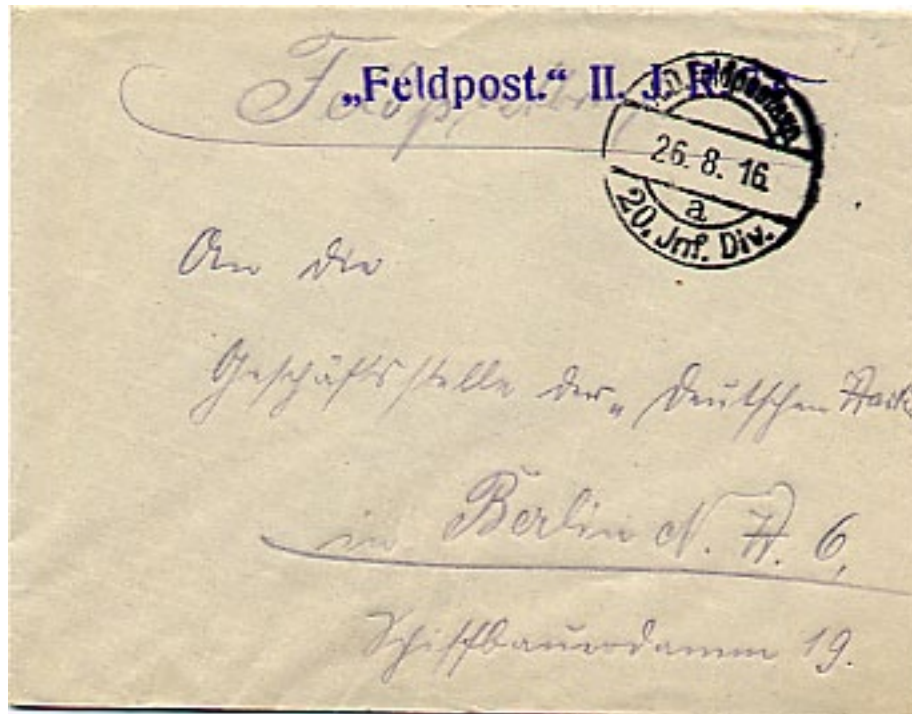 Feldpost
„Feldpost.“ II. J. R.
K.D. Feldpostexp.
26. 8. 16.
a
20. Jnf. Div.
An die
Geschäftsstelle der „Deutschen
in Berlin N. W. 6,
Schiffbauerdamm 19.